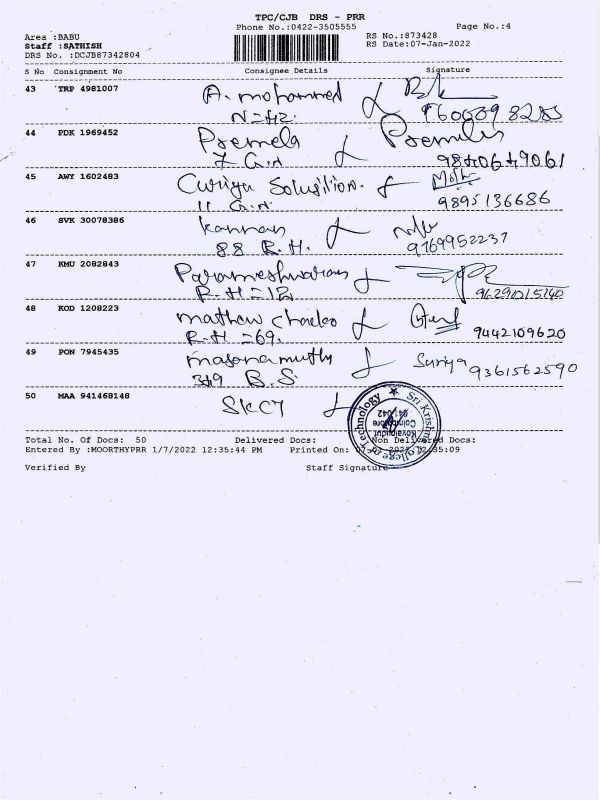 TPC/CJB DRS - PRR
Phone No.:0422-3505555 Page No.:4
Area :BABU RS No.:873428
Staff :SATHISH RS Date:07-Jan-2022
DRS No. :DCJB87342804
S No Consignment No Consignee Details Signature
43 TRP 4981007 A. mohammed
N=42
44 PDK 1969452 Premela
7 G.H 9840649061
45 AWY 1602483
11 G.H. 9895136686
46 SVK 30078386 kannan
88 R.H. 9769952237
47 KMU 2082843 Parameshwaran
R-H=12
48 KOD 1208223 mathew chacko
R-H=69. 9442109620
49 PON 7945435 Suriya 9361562590
349 B.S.
50 MAA 941468148 SKCT
Sri Krishna College of Technology
Kovaipudur
Coimbatore
641 042
Total No. Of Docs: 50 Delivered Docs: Non Delivered Docs:
Entered By :MOORTHYPRR 1/7/2022 12:35:44 PM Printed On:
Verified By Staff Signature